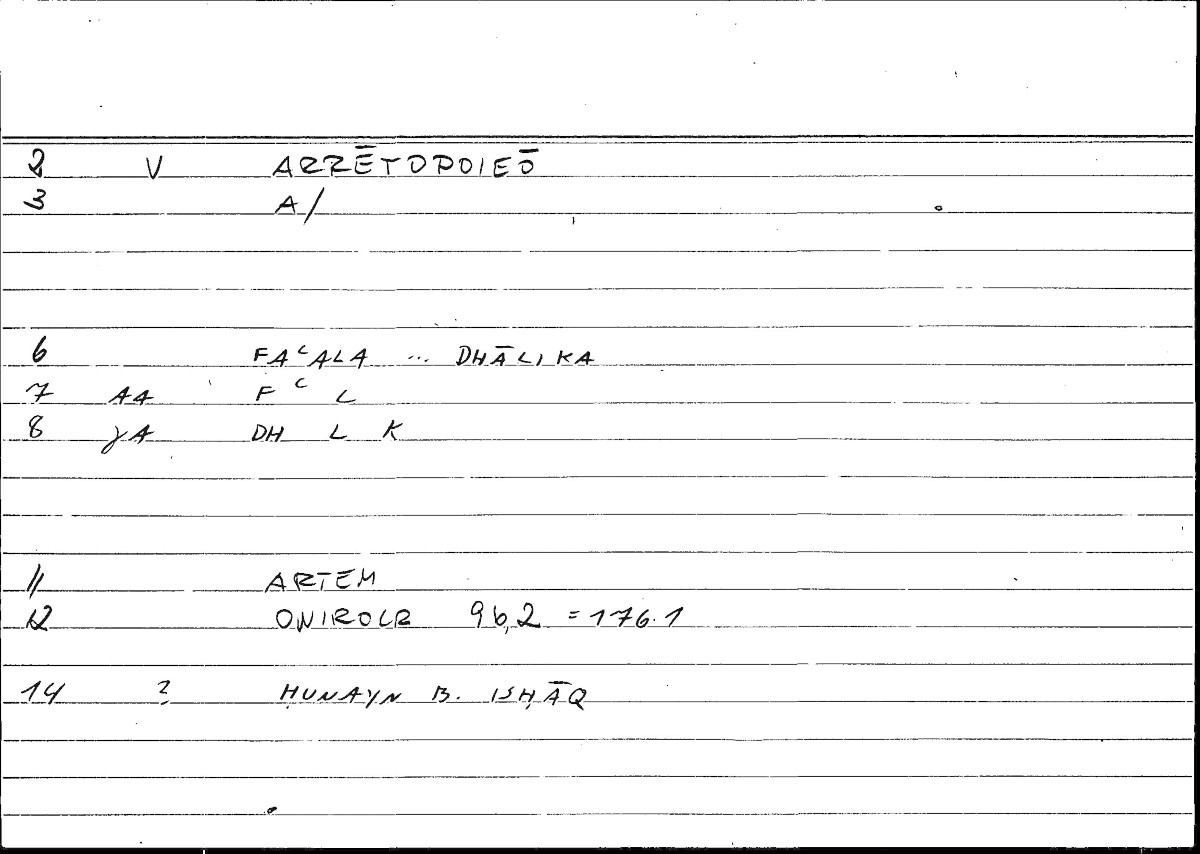 2 V ARRĒTOPOIEŌ
3 A/
6 FAʿALA ... DHĀLIKA
7 AA F ʿ L
8 γA DH L K
11 ARTEM
12 ONIROCR 96,2 = 176.1
14 ? ḤUNAYN B. ISḤĀQ